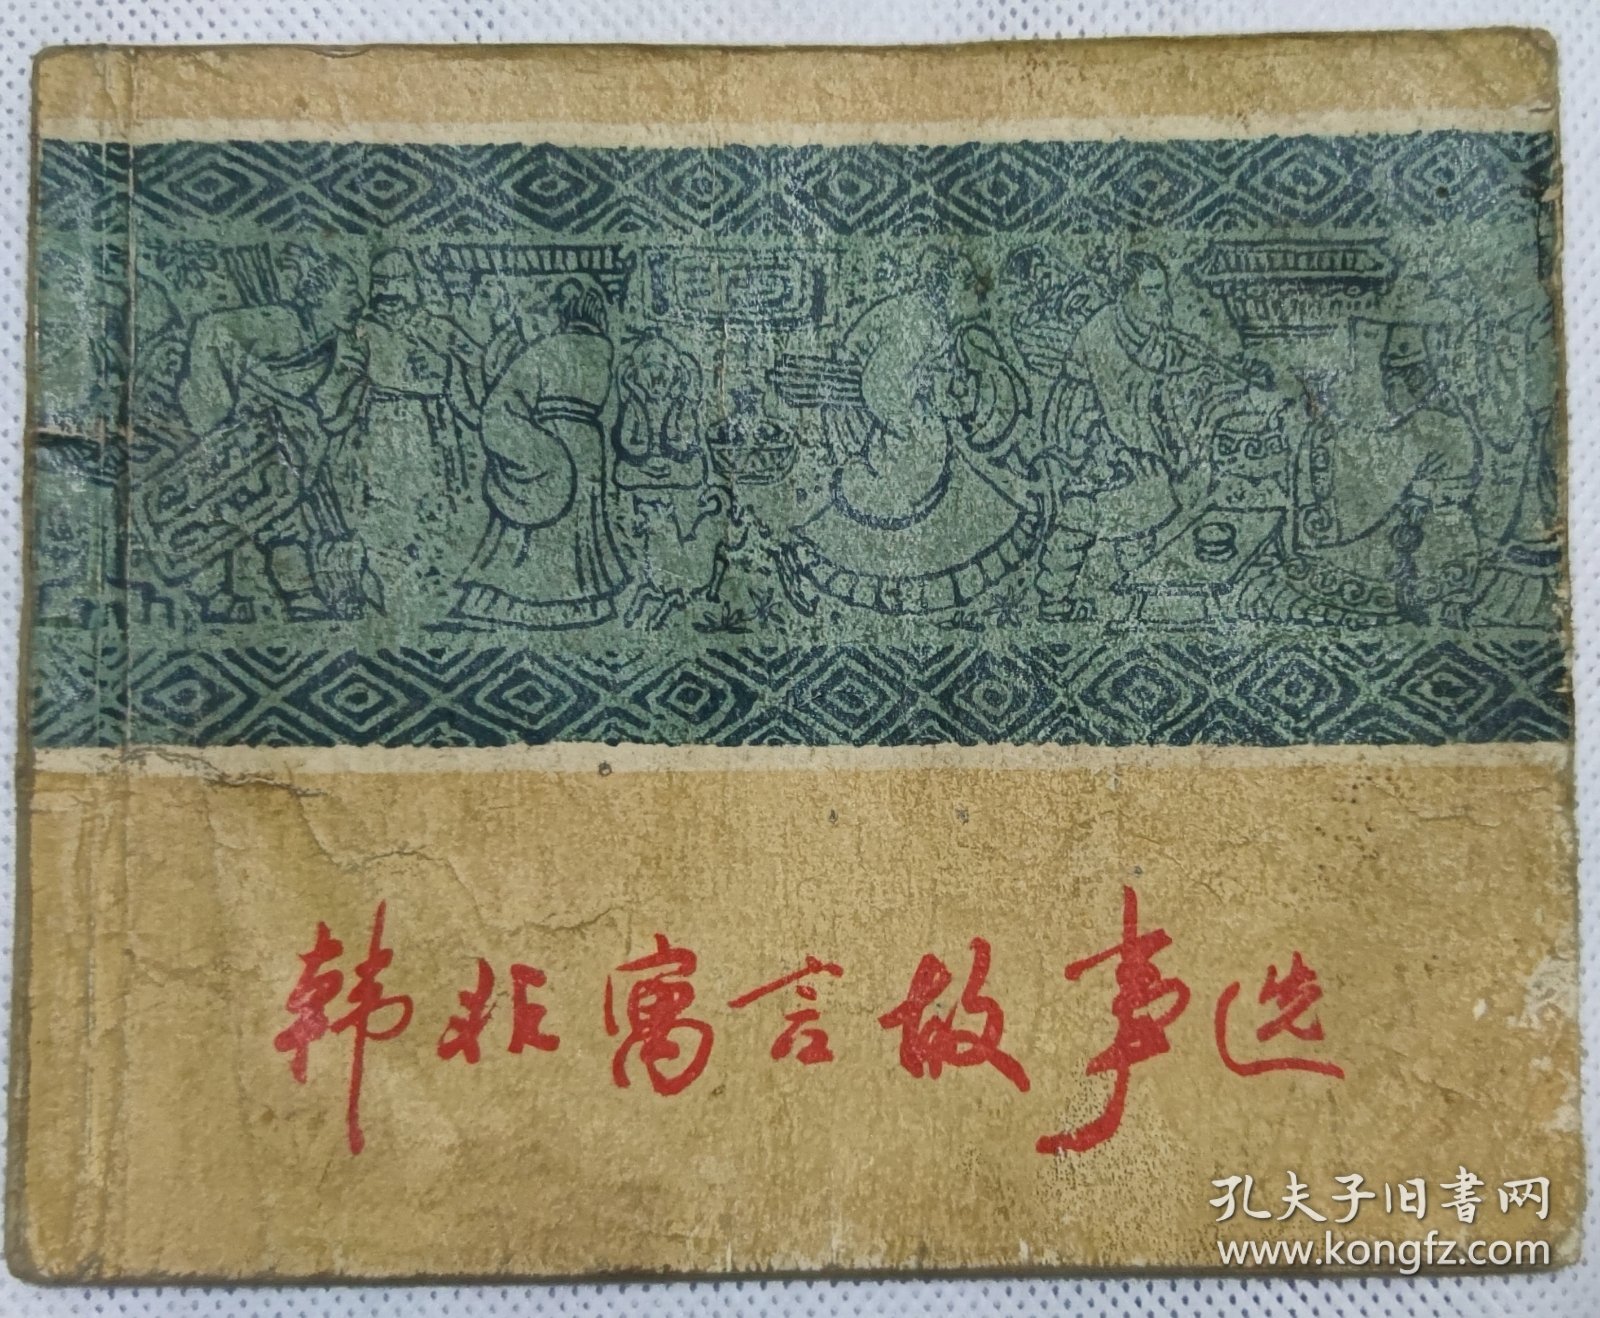 韩非寓言故事选
孔夫子旧書网
www.kongfz.com